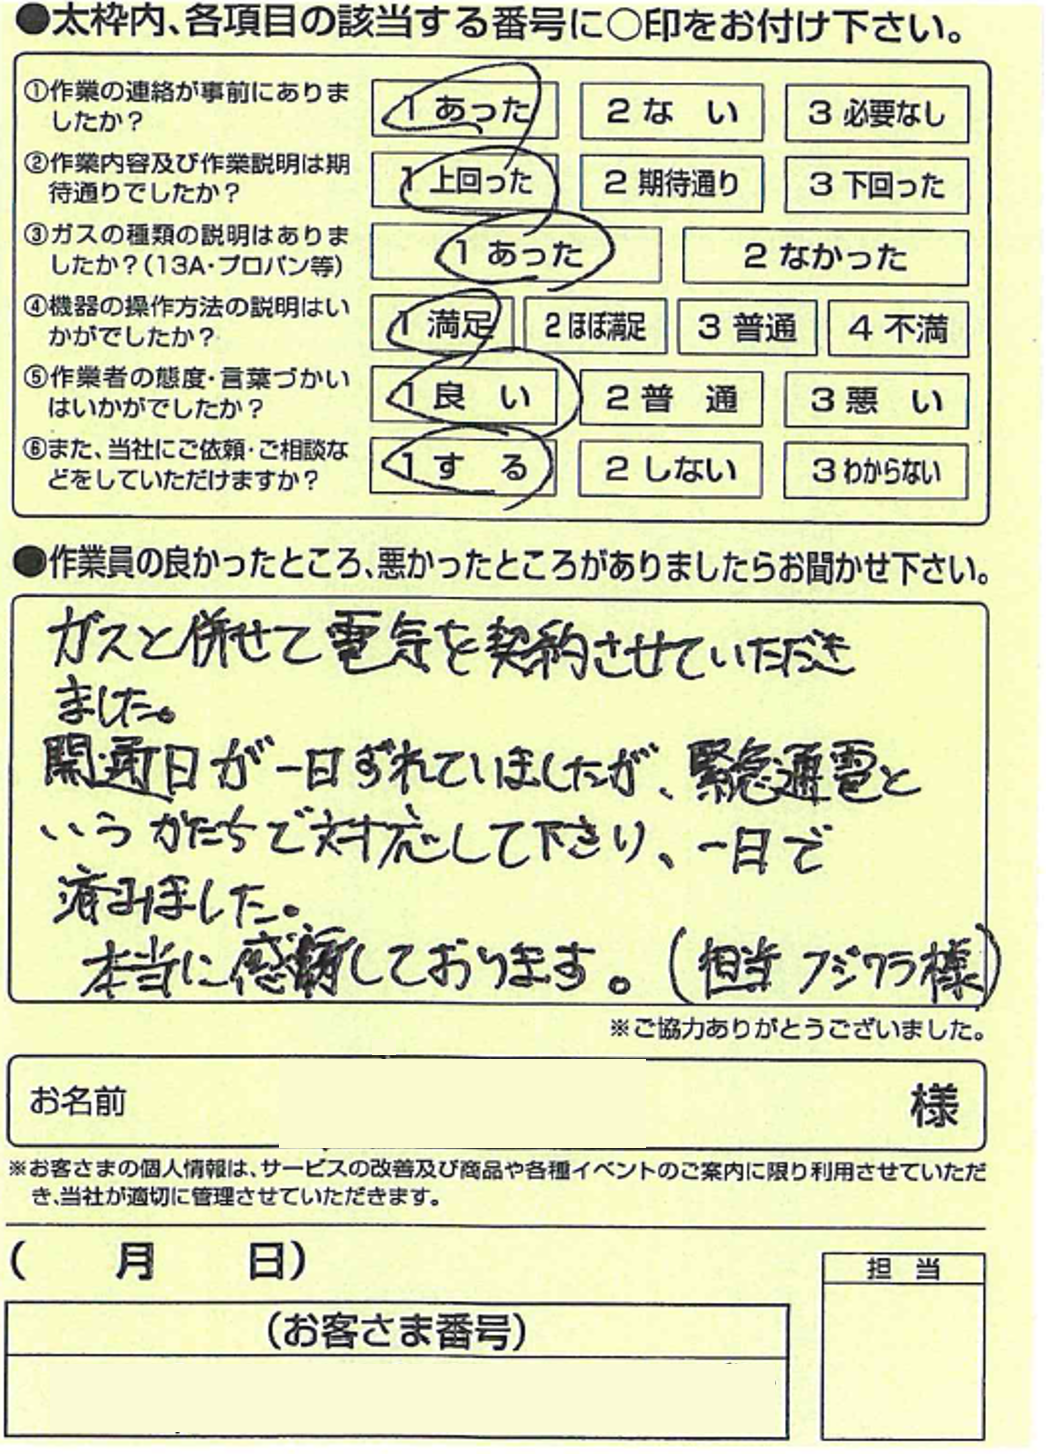 ●太枠内、各項目の該当する番号に○印をお付け下さい。
①作業の連絡が事前にありま
したか？
1 あった
2 な い
3 必要なし
②作業内容及び作業説明は期
待通りでしたか？
1 上回った
2 期待通り
3 下回った
③ガスの種類の説明はありま
したか？(13A・プロパン等)
1 あった
2 なかった
④機器の操作方法の説明はい
かがでしたか？
1 満足
2 ほぼ満足
3 普通
4 不満
⑤作業者の態度・言葉づかい
はいかがでしたか？
1 良 い
2 普 通
3 悪 い
⑥また、当社にご依頼・ご相談な
どをしていただけますか？
1 す る
2 しない
3 わからない
●作業員の良かったところ、悪かったところがありましたらお聞かせ下さい。
ガスと併せて電気を契約させていただき
ました。
開通日が一日ずれていましたが、緊急通電と
いうかたちで対応して下さり、一日で
済みました。
本当に感謝しております。(担当 フジワラ様)
※ご協力ありがとうございました。
お名前
様
※お客さまの個人情報は、サービスの改善及び商品や各種イベントのご案内に限り利用させていただ
き、当社が適切に管理させていただきます。
( 月 日)
担 当
(お客さま番号)